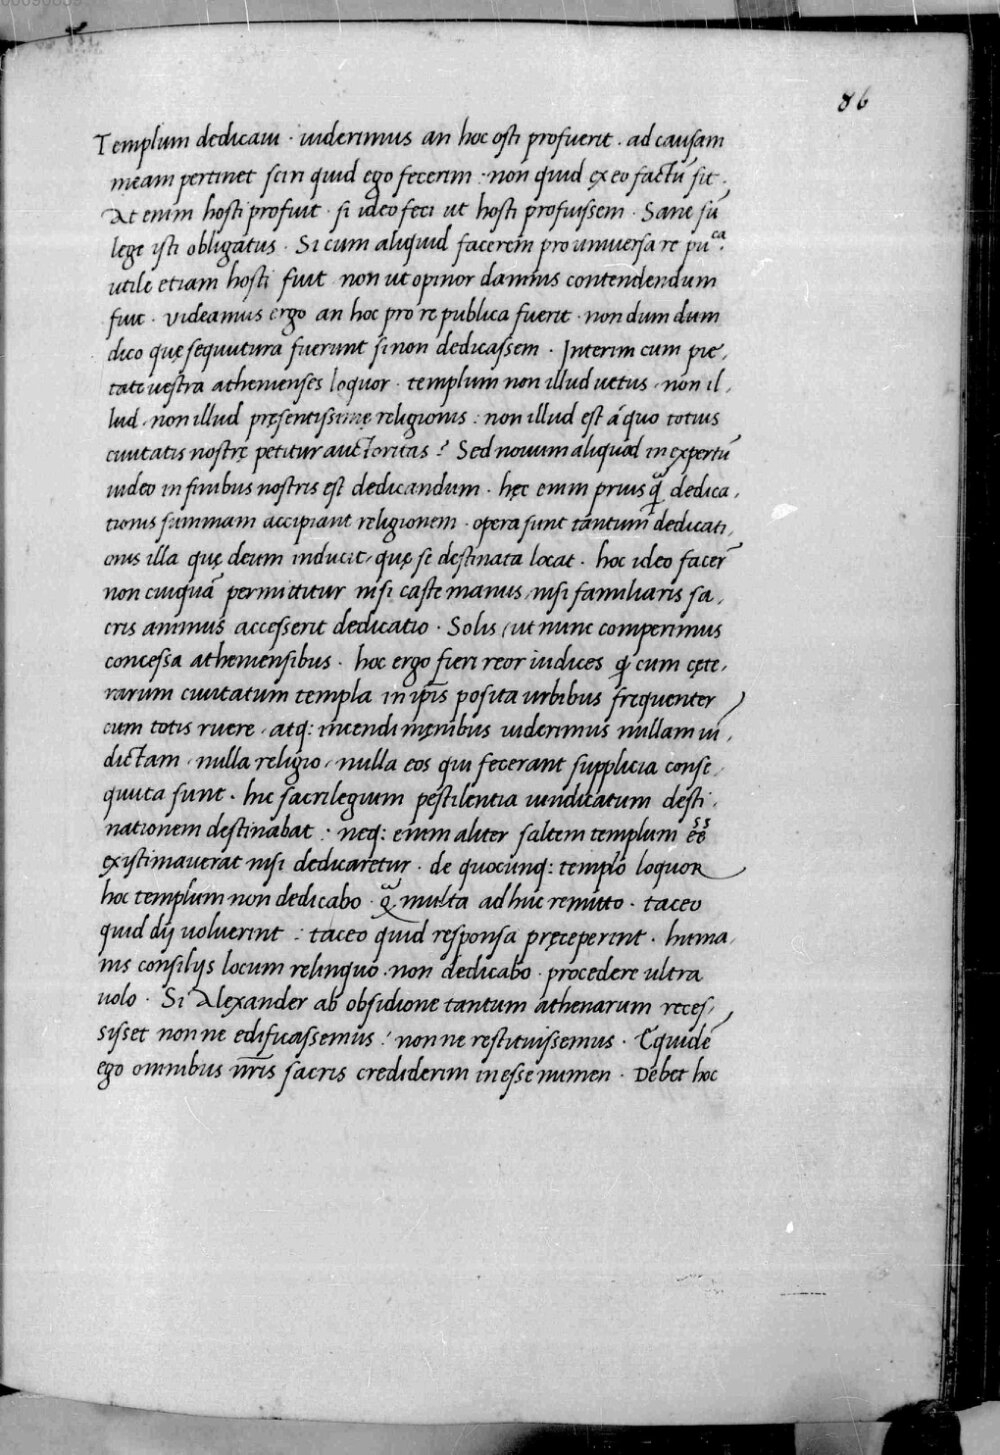 86
Templum dedicaui · uiderimus an hoc osti profuerit · ad causam
meam pertinet sciri quid ego fecerim : non quid ex eo factũ sit ·
At enim hosti profuit · si ideo feci ut hosti profuissem · Sane sũ
lege isti obligatus · Si cum aliquid facerem pro uniuersa re puᶜᵃ·
utile etiam hosti fuit non ut opinor damnis contendendum
fuit · Videamus ergo an hoc pro re publica fuerit · non dum dum
dico quę sequutura fuerunt si non dedicassem · Interim cum pie,
tate uestra athenienses loquor · templum non illud uetus, non il,
lud, non illud pręsentissimę religionis : non illud est á quo totius
ciuitatis nostrę petitur auctoritas ? Sed nouum aliquod in expertũ
uideo in finibus nostris est dedicandum · hęc enim prius q̃ dedica,
tionis summam accipiant religionem · opera sunt tantum dedicati,
onis illa quę deum inducit, quę se destinata locat · hoc ideo facer̃
non cuiquã permittitur nisi caste manus, nisi familiaris sa,
cris animus accesserit dedicatio · Solis, ut nunc comperimus
concessa atheniensibus · hoc ergo fieri reor iudices ꝙ cum cęte,
rarum ciuitatum templa in ip̃is posita urbibus frequenter
cum totis ruere, atq: incendi męnibus uiderimus nullam ui,
dictam, nulla religio, nulla eos qui fecerant supplicia conse,
quuta sunt · hic sacrilegium pestilentia uindicatum desti,
nationem destinabat : neq: enim aliter saltem templum ee̾
existimauerat nisi dedicaretur · de quocunq: templo loquor
hoc templum non dedicabo · q̃ multa ad huc remitto · taceo
quid dij uoluerint : taceo quid responsa pręceperint · huma,
nis consilijs locum relinquo · non dedicabo · procedere ultra
uolo · Si Alexander ab obsidione tantum athenarum reces,
sisset non ne edificassemus ? non ne restituissemus · Equidẽ
ego omnibus nr̃is sacris crediderim inesse numen · Debet hoc